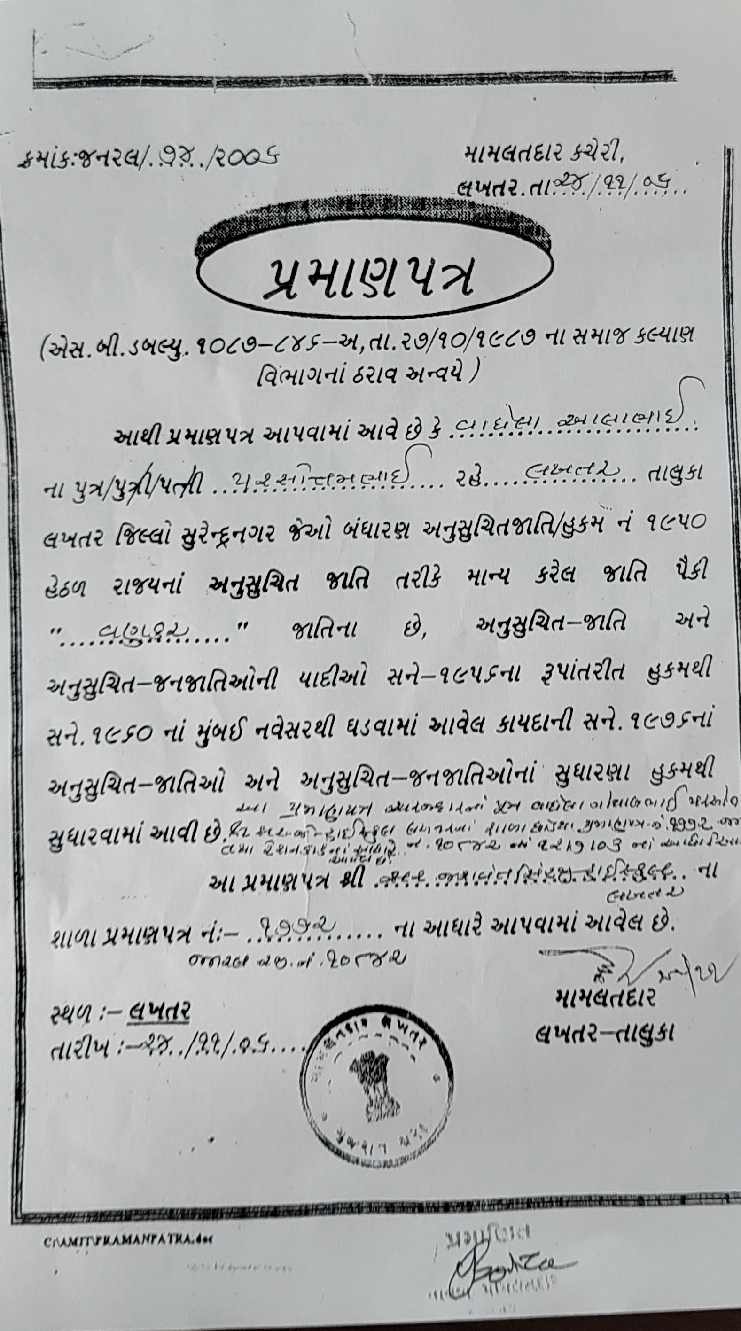 ક્રમાંક:જનરલ/.૭૪./૨૦૦૬
મામલતદાર કચેરી,
લખતર.તા.૨૪/૧૧/૦૬..
પ્રમાણપત્ર
(એસ.બી.ડબલ્યુ. ૧૦૮૭–૮૪૬–અ,તા.૨૭/૧૦/૧૯૮૭ ના સમાજ કલ્યાણ
વિભાગનાં ઠરાવ અન્વયે )
આથી પ્રમાણપત્ર આપવામાં આવે છે કે .વાઘેલા આલાભાઈ.
ના પુત્ર/પુત્રી/પત્ની ..પરસોત્તમભાઈ.... રહે.... લખતર.... તાલુકા
લખતર જિલ્લો સુરેન્દ્રનગર જેઓ બંધારણ અનુસુચિતજાતિ/હુકમ નં ૧૯૫૦
હેઠળ રાજ્યનાં અનુસુચિત જાતિ તરીકે માન્ય કરેલ જાતિ પૈકી
"....વણકર....." જાતિના છે, અનુસુચિત–જાતિ અને
અનુસુચિત–જનજાતિઓની યાદીઓ સને–૧૯૫૬ના રૂપાંતરીત હુકમથી
સને.૧૯૬૦ નાં મુંબઈ નવેસરથી ઘડવામાં આવેલ કાયદાની સને.૧૯૭૬નાં
અનુસુચિત–જાતિઓ અને અનુસુચિત–જનજાતિઓનાં સુધારણા હુકમથી
આ પ્રમાણપત્ર અરજદારનાં પુત્ર વાઘેલા
સુધારવામાં આવી છે. હાઈસ્કુલ લખતરનાં શાળા પ્રમાણપત્ર નં.૧૭૭૨
તથા રેશનકાર્ડનાં આધારે
આ પ્રમાણપત્ર શ્રી હાઈસ્કુલ.. ના
લખતર
શાળા પ્રમાણપત્ર નં:– ..૧૭૭૨...... ના આધારે આપવામાં આવેલ છે.
જનરલ નં.૧૦૮૪૨
મામલતદાર
લખતર–તાલુકા
સ્થળ :– લખતર
તારીખ :–૨૪../૧૧/.૦૬....
મામલતદાર લખતર
C:\AMIT\PRAMANPATRA.doc
પ્રમાણિત